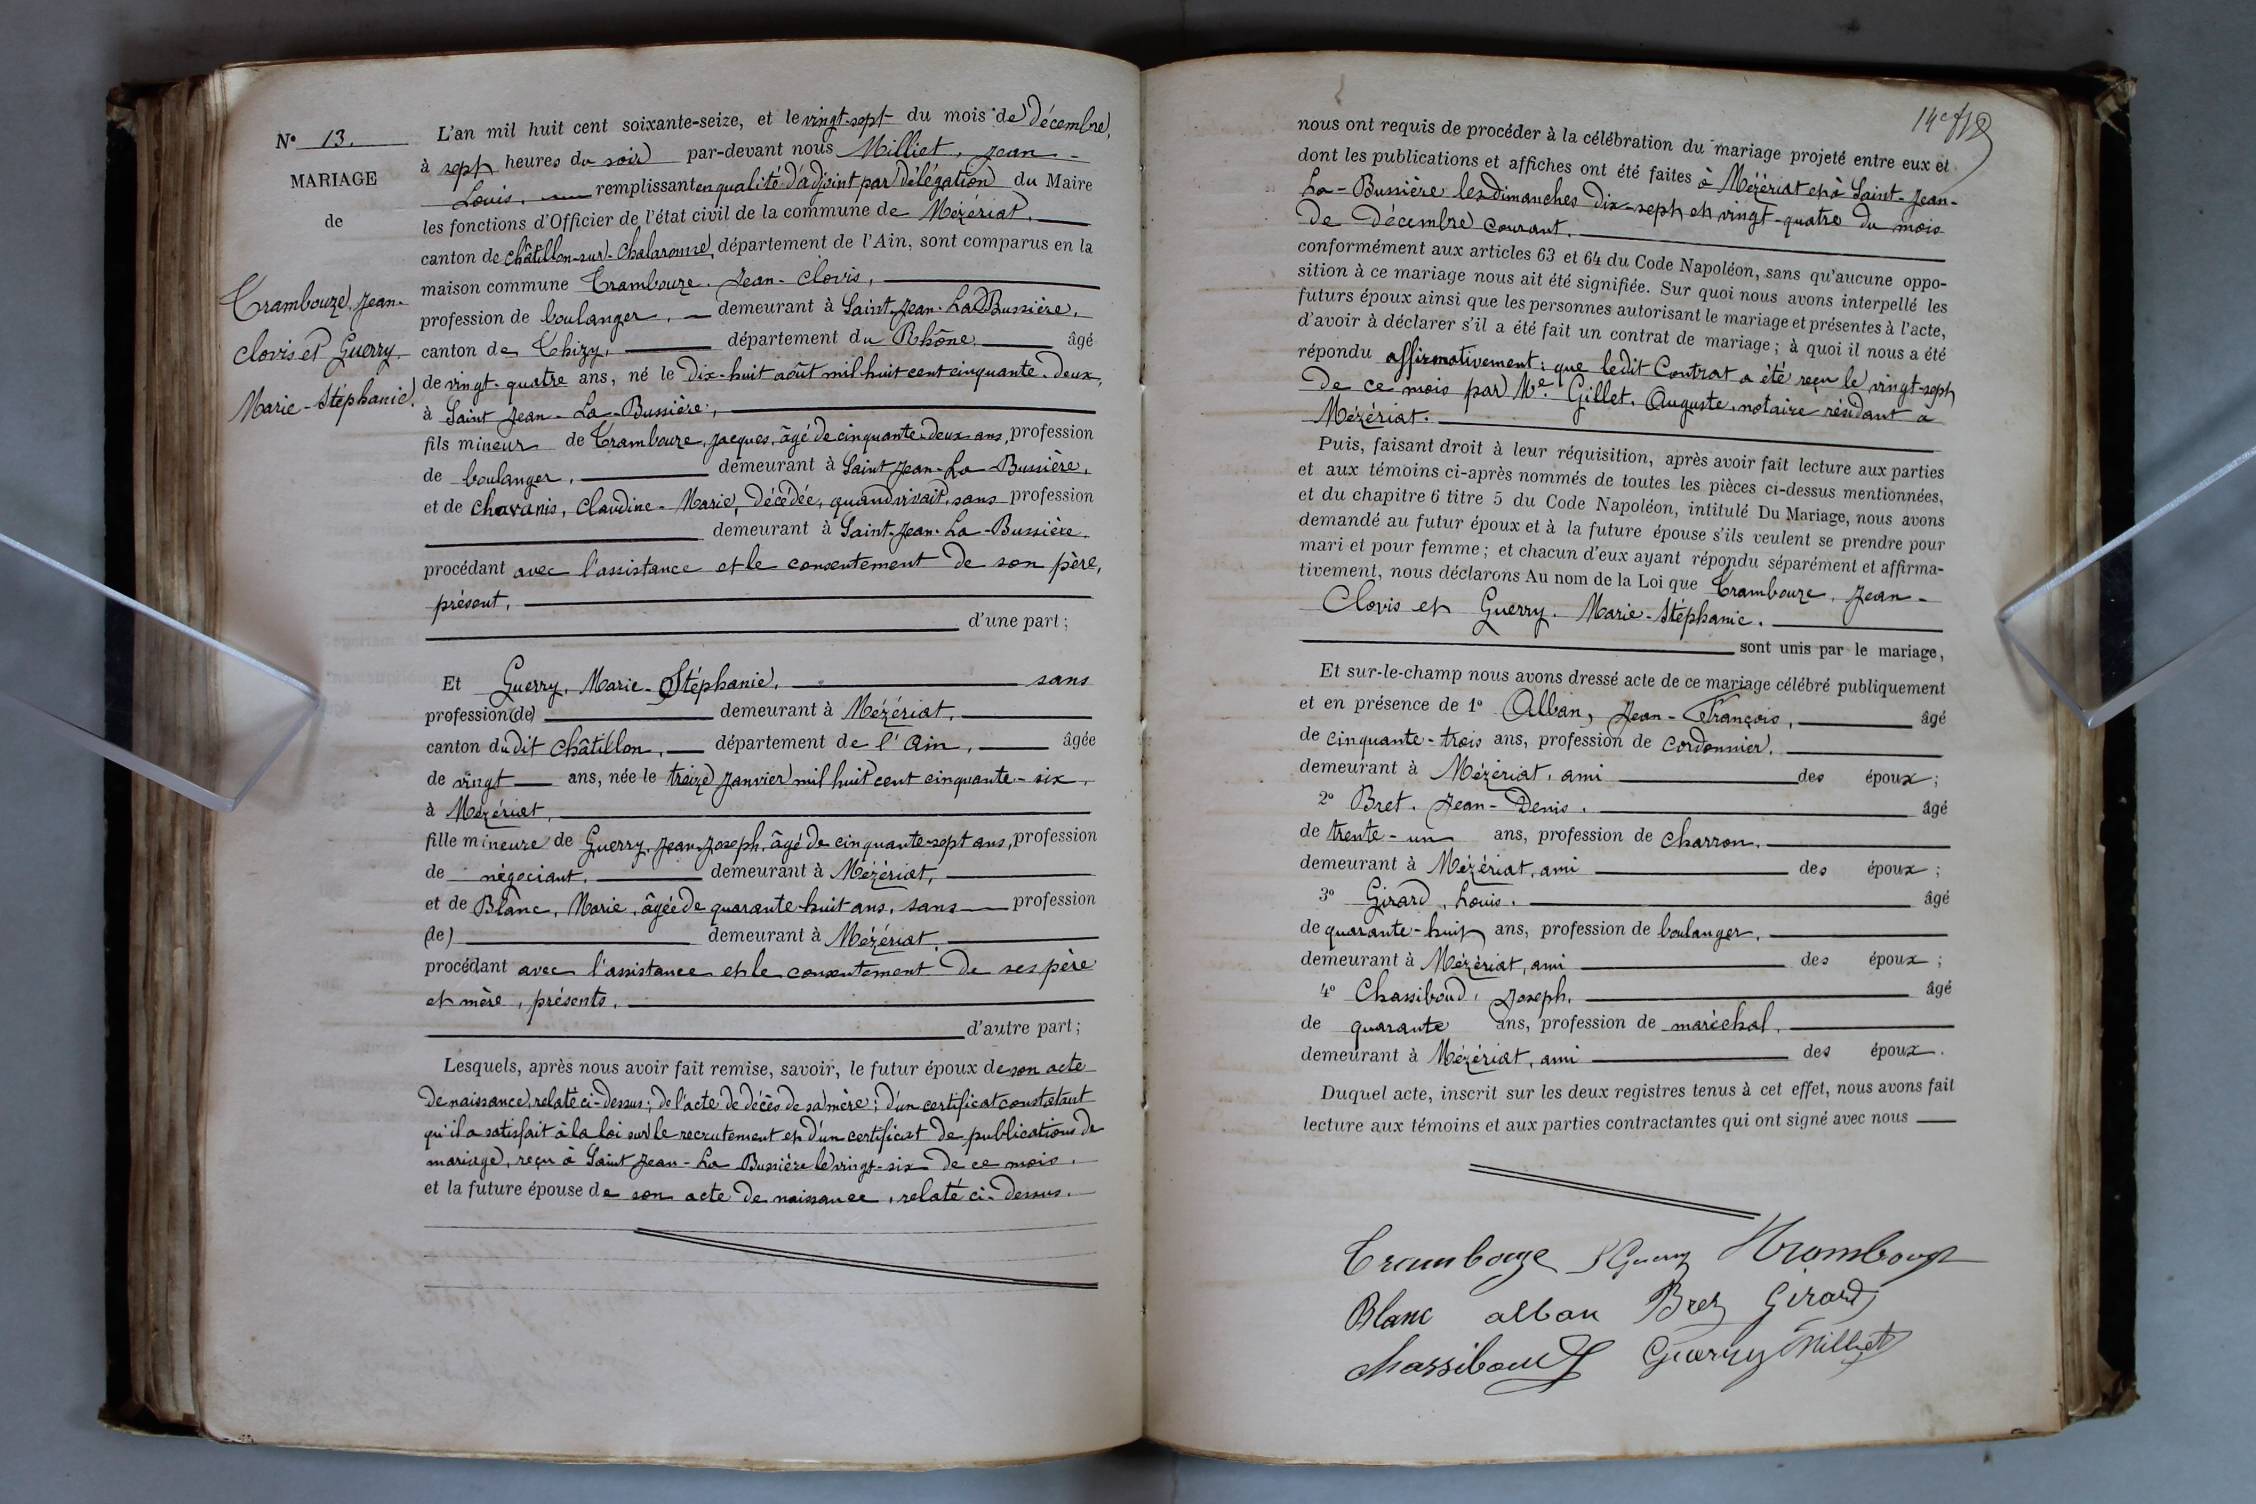 N° 13.
MARIAGE
de
Trambouze, Jean-
Clovis et Guerry
Marie-Stéphanie.
L'an mil huit cent soixante-seize, et le vingt-sept du mois de Décembre,
à sept heures du soir par-devant nous Milliet, Jean-
Louis, remplissant en qualité d'adjoint par délégation du Maire
les fonctions d'Officier de l'état civil de la commune de Mézériat,
canton de Châtillon-sur-Chalaronne, département de l'Ain, sont comparus en la
maison commune Trambouze, Jean-Clovis,
profession de boulanger, demeurant à Saint-Jean-La-Bussière,
canton de Thizy, département du Rhône, âgé
de vingt-quatre ans, né le Dix-huit août mil huit cent cinquante-deux,
à Saint Jean-La-Bussière,
fils mineur de Trambouze, Jacques, âgé de cinquante-deux ans, profession
de boulanger, demeurant à Saint Jean-La-Bussière,
et de Chavanis, Claudine-Marie, Décédée, quand vivait, sans profession
demeurant à Saint-Jean-La-Bussière.
procédant avec l'assistance et le consentement de son père,
présent,
d'une part;
Et Guerry, Marie-Stéphanie, sans
profession (de) demeurant à Mézériat,
canton dudit Châtillon, département de l'Ain, âgée
de vingt ans, née le treize Janvier mil huit cent cinquante-six,
à Mézériat,
fille mineure de Guerry, Jean-Joseph, âgé de cinquante-sept ans, profession
de négociant, demeurant à Mézériat,
et de Blanc, Marie, âgée de quarante-huit ans, sans profession
(de) demeurant à Mézériat,
procédant avec l'assistance et le consentement de ses père
et mère, présents,
d'autre part;
Lesquels, après nous avoir fait remise, savoir, le futur époux de son acte
de naissance, relaté ci-dessus; de l'acte de décès de sa mère; d'un certificat constatant
qu'il a satisfait à la loi sur le recrutement et d'un certificat de publications de
mariage, reçu à Saint Jean-La Bussière le vingt-six de ce mois.
et la future épouse de son acte de naissance, relaté ci-dessus.
nous ont requis de procéder à la célébration du mariage projeté entre eux et
dont les publications et affiches ont été faites à Mézériat et à Saint-Jean-
La-Bussière les Dimanches Dix-sept et vingt-quatre du mois
de Décembre courant.
conformément aux articles 63 et 64 du Code Napoléon, sans qu'aucune oppo-
sition à ce mariage nous ait été signifiée. Sur quoi nous avons interpellé les
futurs époux ainsi que les personnes autorisant le mariage et présentes à l'acte,
d'avoir à déclarer s'il a été fait un contrat de mariage; à quoi il nous a été
répondu affirmativement: que ledit Contrat a été reçu le vingt-sept
de ce mois par Me. Gillet, Auguste, notaire résidant à
Mézériat.
Puis, faisant droit à leur réquisition, après avoir fait lecture aux parties
et aux témoins ci-après nommés de toutes les pièces ci-dessus mentionnées,
et du chapitre 6 titre 5 du Code Napoléon, intitulé Du Mariage, nous avons
demandé au futur époux et à la future épouse s'ils veulent se prendre pour
mari et pour femme; et chacun d'eux ayant répondu séparément et affirma-
tivement, nous déclarons Au nom de la Loi que Trambouze, Jean-
Clovis et Guerry, Marie-Stéphanie.
sont unis par le mariage,
Et sur-le-champ nous avons dressé acte de ce mariage célébré publiquement
et en présence de 1° Alban, Jean-François, âgé
de cinquante-trois ans, profession de cordonnier,
demeurant à Mézériat, ami des époux;
2° Bret, Jean-Denis, âgé
de trente-un ans, profession de charron,
demeurant à Mézériat, ami des époux;
3° Girard, Louis, âgé
de quarante-huit ans, profession de boulanger,
demeurant à Mézériat, ami des époux;
4° Chassiboud, Joseph, âgé
de quarante ans, profession de maréchal,
demeurant à Mézériat, ami des époux.
Duquel acte, inscrit sur les deux registres tenus à cet effet, nous avons fait
lecture aux témoins et aux parties contractantes qui ont signé avec nous
Trambouze S Guerry Trambouze
Blanc alban Bret Girard
Chassiboud Guerry Milliet